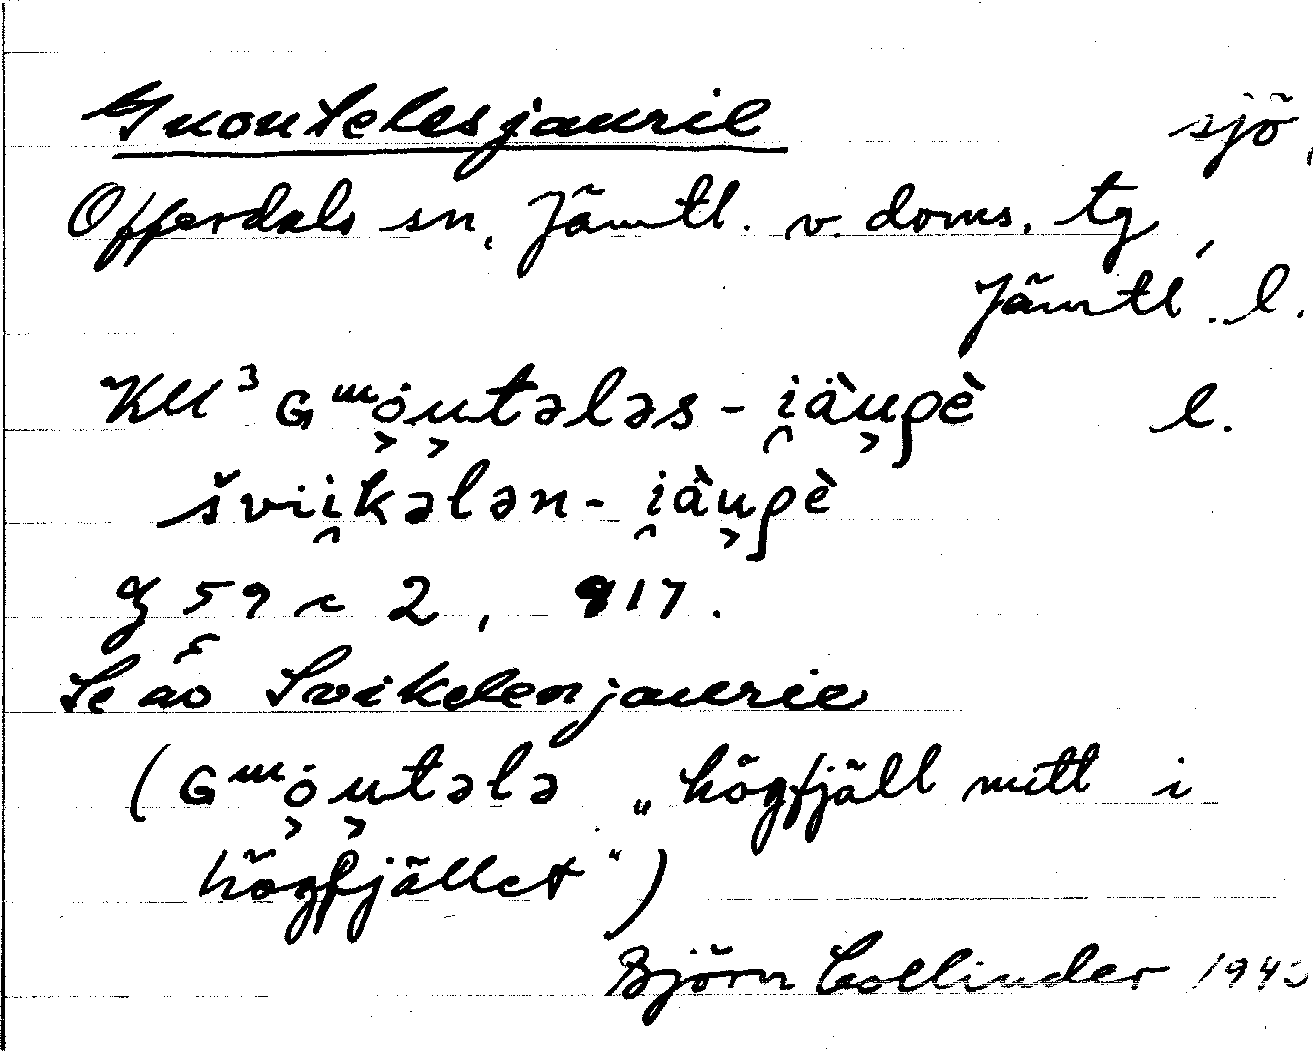 Guoutelesjaurie sjö,
Offerdals sn, Jämtl. v. doms. tg,
Jämtl. l.
KU³ Gᵚo̤u̬tələs - i̯àu̬ρè l.
švii̯kələn - i̯àu̬ρè
59 c 2, 817.
Se äv Svikelenjaurie
(Gᵚo̤u̬tələ „högfjäll mitt i
högfjället")
Björn Collinder 194